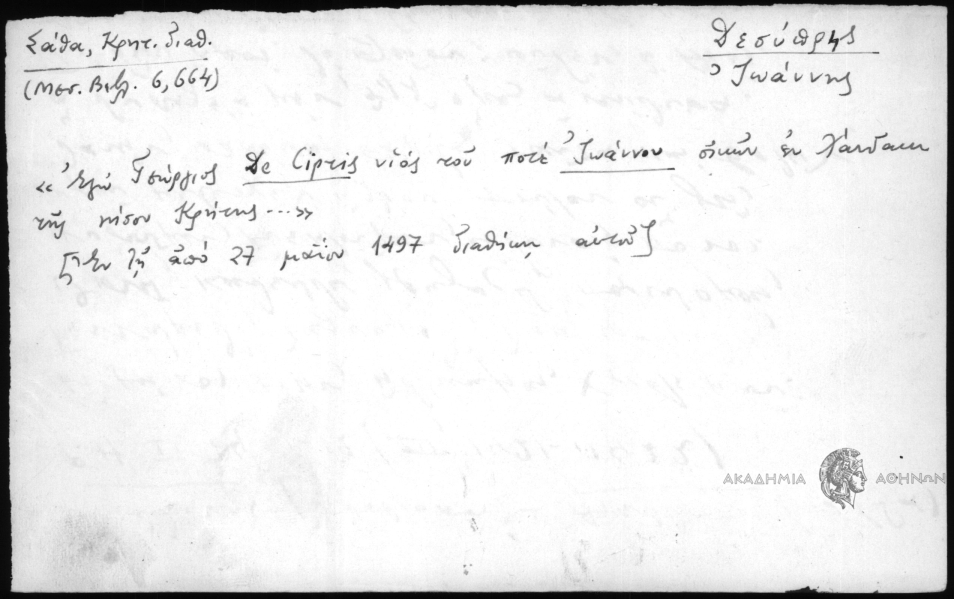 Σάθα, Κρητ. διαθ.
(Μεσ. Βιβλ. 6, 664)
Δεσύπρης
Ἰωάννης
«Ἐγὼ Γεώργιος De Cipris υἱὸς τοῦ ποτὲ Ἰωάννου οἰκῶν ἐν Χάνδακι
τῆς νήσου Κρήτης...»
[Ἐν τῇ ἀπὸ 27 μαΐου 1497 διαθήκῃ αὐτοῦ]
ΑΚΑΔΗΜΙΑ ΑΘΗΝΩΝ